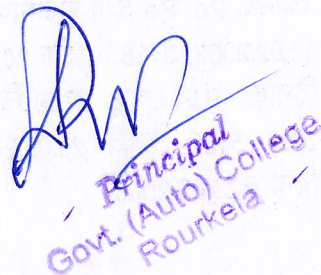 Principal
Govt. (Auto) College
Rourkela